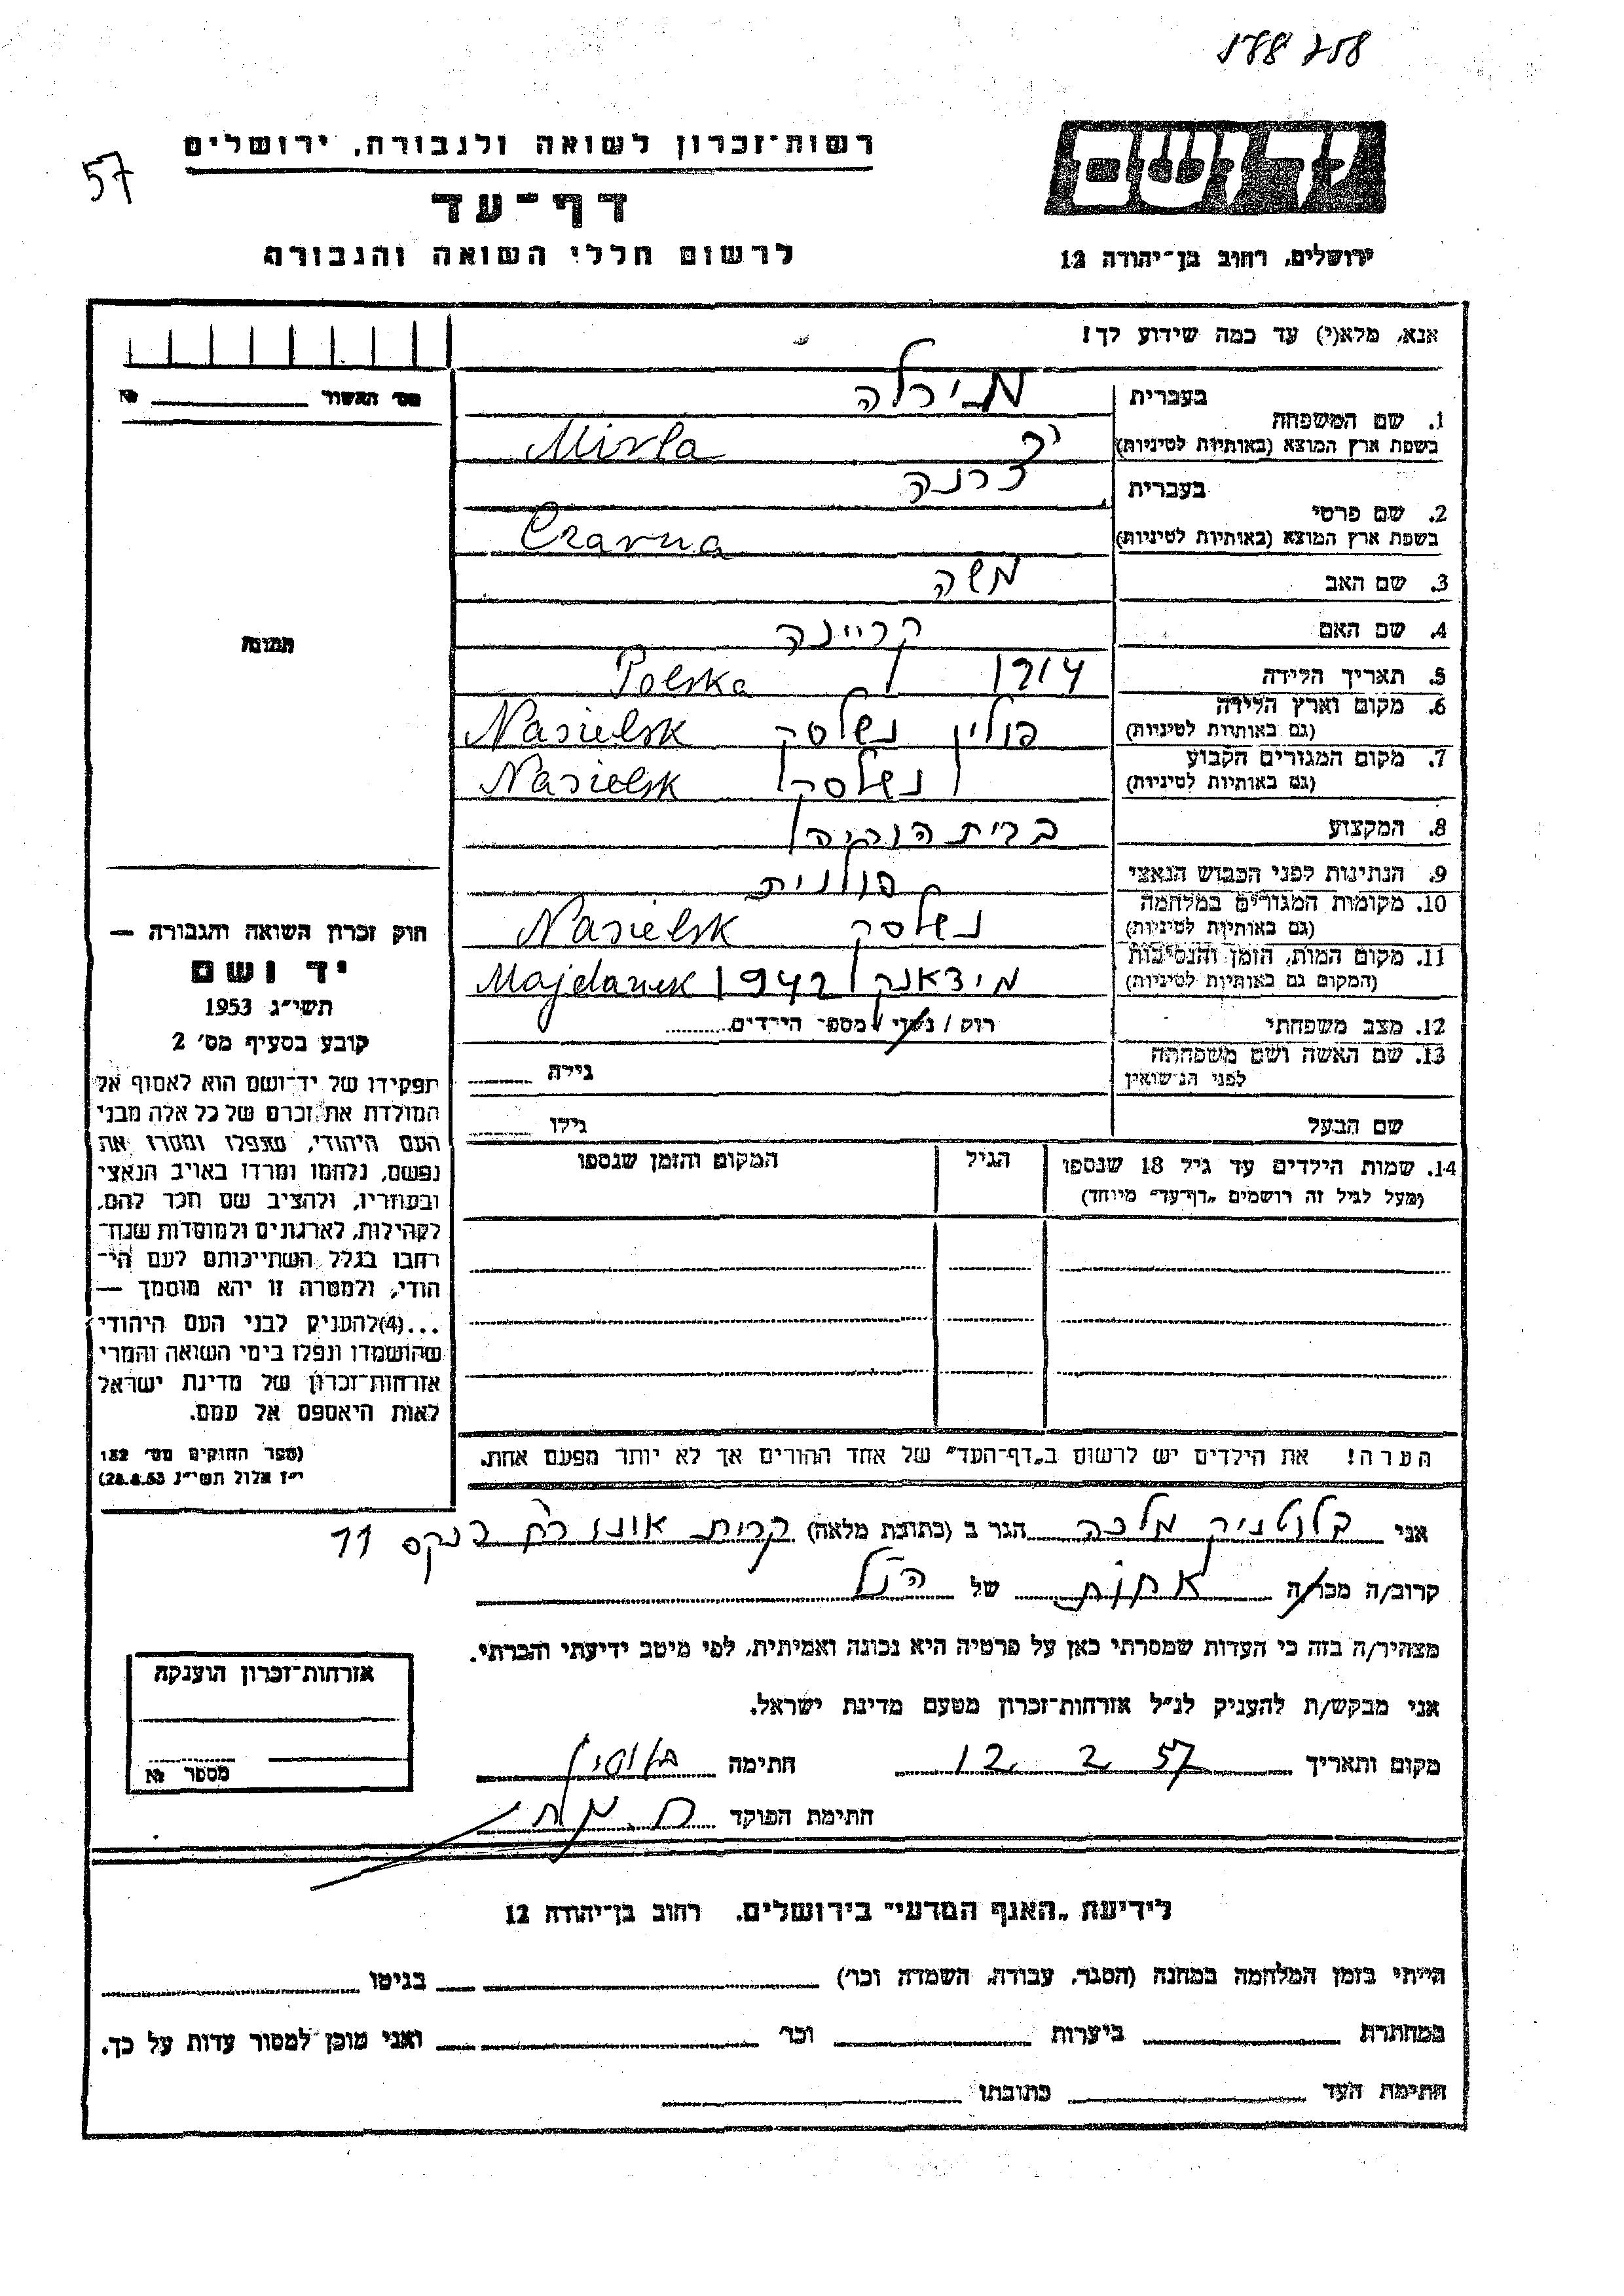 188 758
57
רשות־זכרון לשואה ולגבורה, ירושלים
דף־עד
לרשום חללי השואה והגבורה
יד ושם
ירושלים, רחוב בן־יהודה 12
אנא, מלא(י) עד כמה שידוע לך!
מס׳ האשור №
1. שם המשפחה בעברית מירלה
בשפת ארץ המוצא (באותיות לטיניות) Mirla
2. שם פרטי בעברית צ׳רנה
בשפת ארץ המוצא (באותיות לטיניות) Czarna
3. שם האב משה
4. שם האם קריינה
5. תאריך הלידה 1914
6. מקום וארץ הלידה Polska
(גם באותיות לטיניות) פולין נשלסק Nasielsk
7. מקום המגורים הקבוע
(גם באותיות לטיניות) נשלסק Nasielsk
8. המקצוע
9. הנתינות לפני הכבוש הנאצי פולנית
10. מקומות המגורים במלחמה
(גם באותיות לטיניות) נשלסק Nasielsk
11. מקום המות, הזמן והנסיבות
(המקום גם באותיות לטיניות) מידאנק 1942 Majdanek
12. מצב משפחתי רווק / נשוי / מספר הילדים
13. שם האשה ושם משפחתה
לפני הנשואין גילה
שם הבעל גילו
14. שמות הילדים עד גיל 18 שנספו הגיל המקום והזמן שנספו
(מעל לגיל זה רושמים „דף־עד״ מיוחד)
הערה! את הילדים יש לרשום ב„דף־העד״ של אחד ההורים אך לא יותר מפעם אחת.
תמונה
חוק זכרון השואה והגבורה —
יד ושם
תשי״ג 1953
קובע בסעיף מס׳ 2
תפקידו של יד־ושם הוא לאסוף אל
המולדת את זכרם של כל אלה מבני
העם היהודי, שנפלו ומסרו את
נפשם, נלחמו ומרדו באויב הנאצי
ובעוזריו, ולהציב שם וזכר להם,
לקהילות, לארגונים ולמוסדות שנח־
רבו בגלל השתייכותם לעם הי־
הודי, ולמטרה זו יהא מוסמך —
...(4)להעניק לבני העם היהודי
שהושמדו ונפלו בימי השואה והמרי
אזרחות־זכרון של מדינת ישראל
לאות היאספם אל עמם.
(ספר החוקים מס׳ 132
י״ז אלול תשי״ג 28.8.53)
אני בלוטניק מלכה הגר ב (כתובת מלאה) קרית אונו 11
קרוב/ה מכר/ה אחות של הנ״ל
מצהיר/ה בזה כי העדות שמסרתי כאן על פרטיה היא נכונה ואמיתית, לפי מיטב ידיעתי והכרתי.
אני מבקש/ת להעניק לנ״ל אזרחות־זכרון מטעם מדינת ישראל.
מקום ותאריך 12. 2. 57 חתימה
חתימת הפוקד
אזרחות־זכרון הוענקה
מספר №
לידיעת „האגף המדעי״ בירושלים, רחוב בן־יהודה 12
הייתי בזמן המלחמה במחנה (הסגר, עבודה, השמדה וכו׳) בגיטו
במחתרת ביערות וכו׳ ואני מוכן למסור עדות על כך.
חתימת העד כתובתו